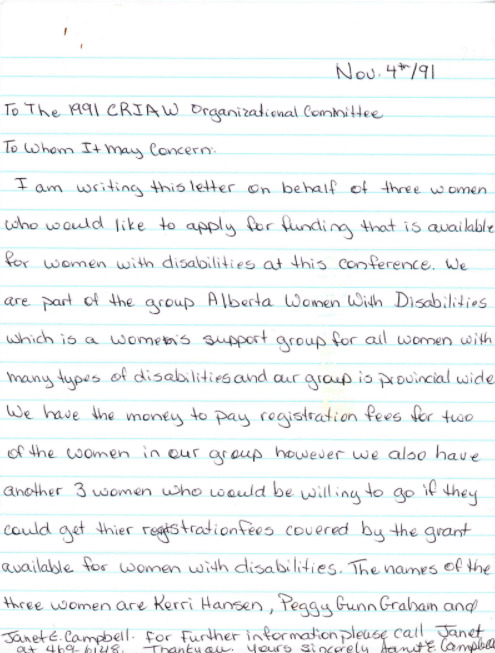 Nov. 4th/91
To The 1991 CRIAW Organizational Committee
To Whom It May Concern.
I am writing this letter on behalf of three women
who would like to apply for funding that is available
for women with disabilities at this conference. We
are part of the group Alberta Women With Disabilities
which is a women's support group for all women with
many types of disabilities and our group is provincial wide
We have the money to pay registration fees for two
of the women in our group however we also have
another 3 women who would be willing to go if they
could get thier registration fees covered by the grant
available for women with disabilities. The names of the
three women are Kerri Hansen, Peggy Gunn Graham and
Janet E. Campbell. For further information please call Janet
at 469-6148. Thankyou. Yours Sincerely Janet E Campbell